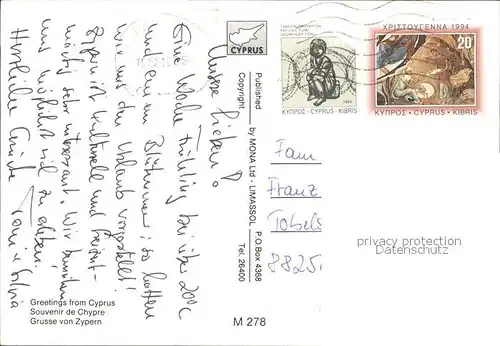 Unsere Lieben!
Eine Woche Frühling bei über 20°C
und ein Blütenmeer: so hatten
wir uns den Urlaub vorgestellt!
Zypern ist kulturell und freizeit-
mässig sehr interessant. Wir bemühen
uns möglichst viel zu erleben.
Herzliche Grüsse
Toni + Silvia
Greetings from Cyprus
Souvenir de Chypre
Grusse von Zypern
CYPRUS
Published by MONA Ltd - LIMASSOL P.O.Box 4368
Copyright Tel. 26400
M 278
ΚΥΠΡΟΣ-CYPRUS-KIBRIS
ΧΡΙΣΤΟΥΓΕΝΝΑ 1994
20
ΚΥΠΡΟΣ · CYPRUS · KIBRIS
Fam
Franz
Tobels
8825
privacy protection
Datenschutz